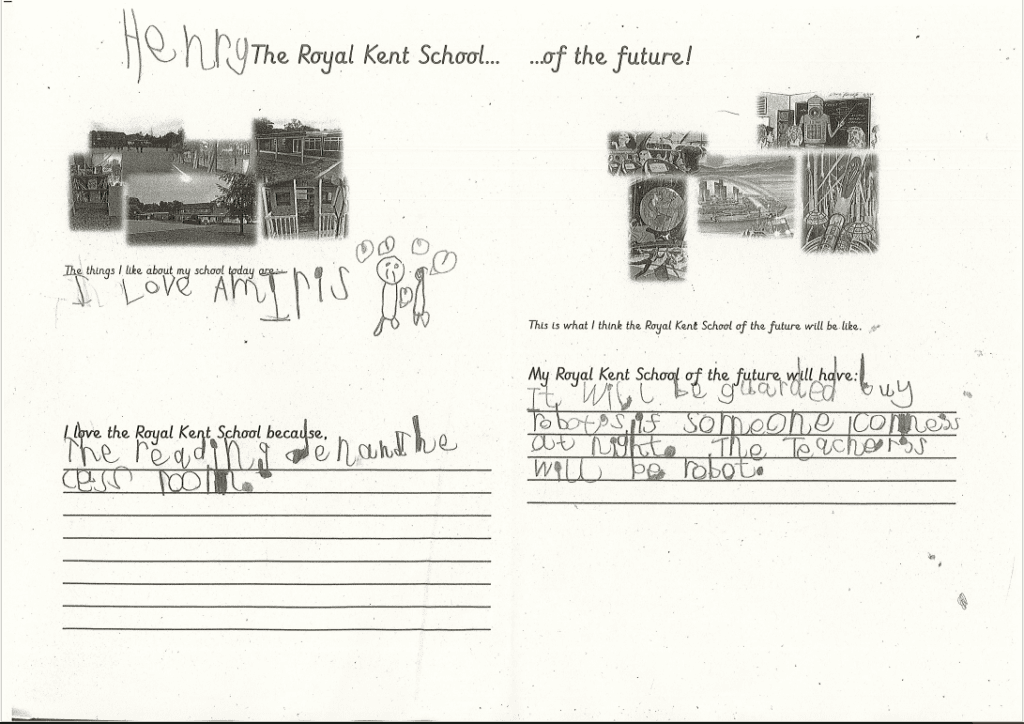 Henry
The Royal Kent School... ...of the future!
The things I like about my school today are:-
I LOVE AMIris
I love the Royal Kent School because,
The reading den and the
cess room.
This is what I think the Royal Kent School of the future will be like.
My Royal Kent School of the future will have:
It will be guarded buy
robots if someone comess
at night. The Teacherss
will be robot.